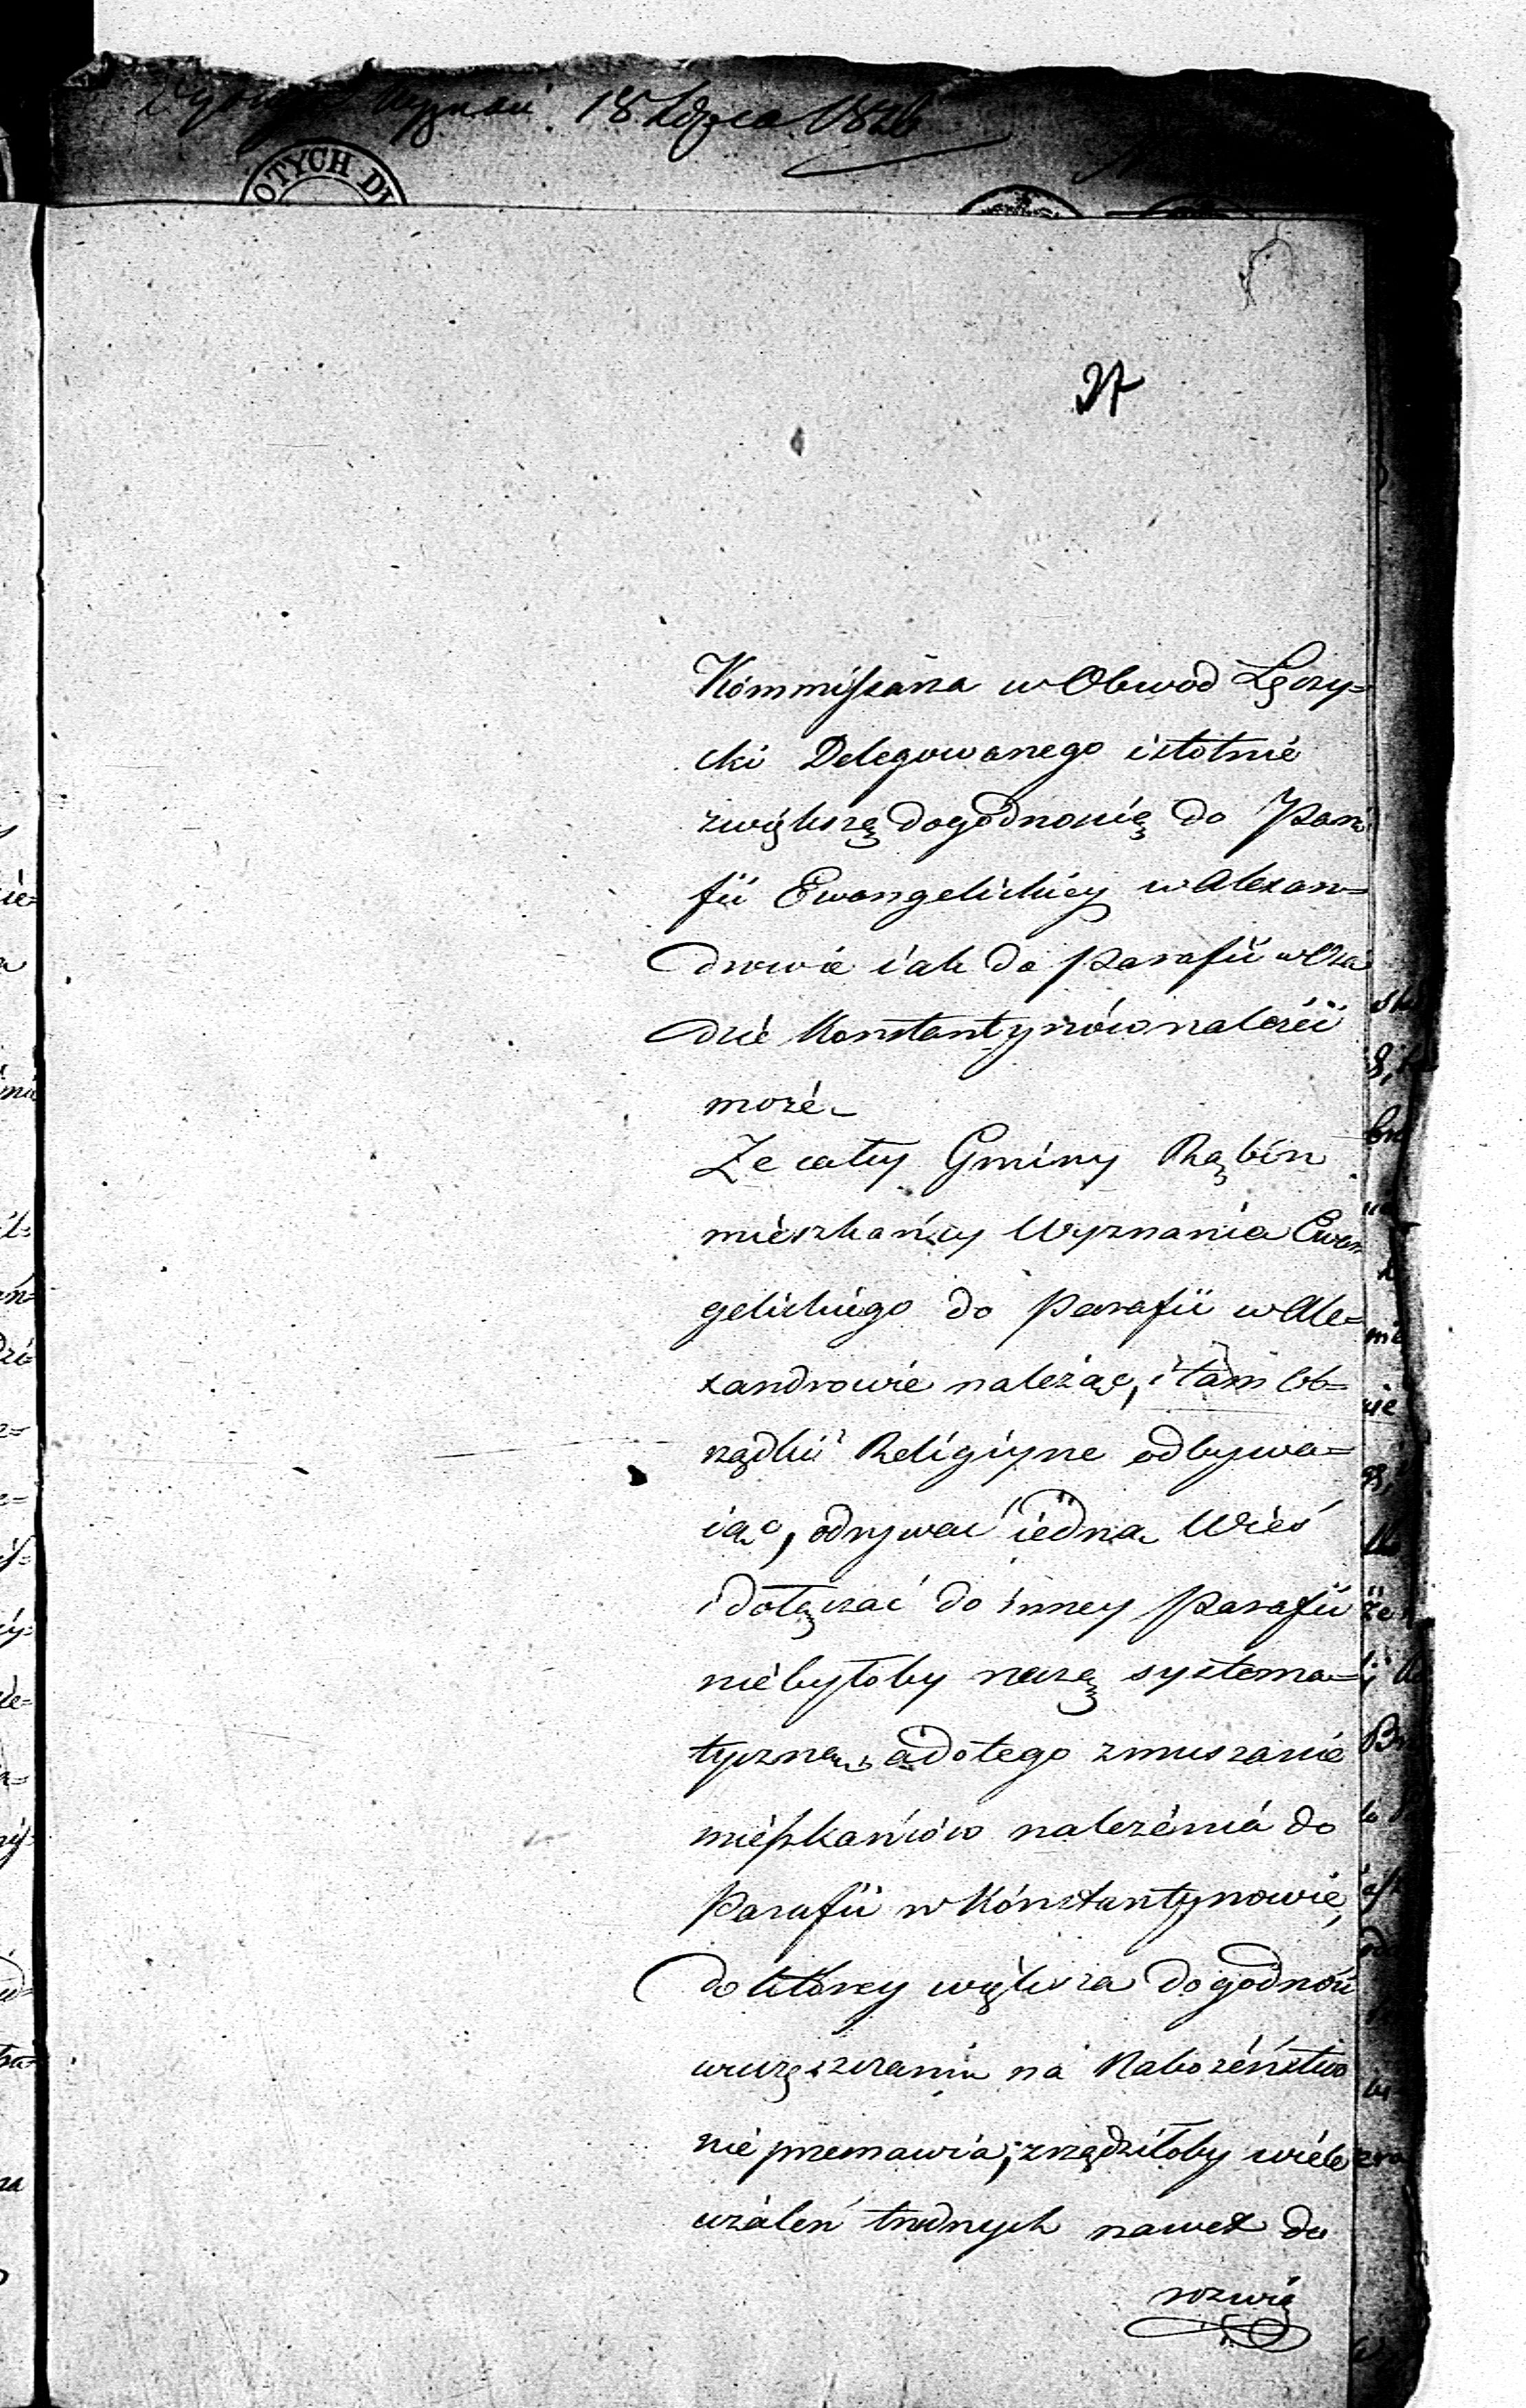 Wyznań 18 Lipca 1826
OTYCH DW
37
Kommissarza w Obwod Łęczy=
cki Delegowanego istotnie
zwiększą dogodnością do Para
fii Ewangelickiey w Alexan=
drowie iak do parafii w Osa
dzie Konstantynów należeć
może
Że cały Gminy Rąbin
mieszkańcy Wyznania Ewan
gelickiego do Parafii w Ale=
xandrowie należąc, i tam Ob=
rządki Religiyne odbywa=
iąc, odrywać iedną Wieś
i dołączać do inney Parafii
niebyłoby rzeczą systema=
tyczną, a do tego zmuszanie
mieszkańców należenia do
Parafii w Konstantynowie,
do którey większa dogodność
uczęszczania na Nabożeństwo
nie przemawia, zrządziłoby wiele
użaleń trudnych nawet do
rozwią